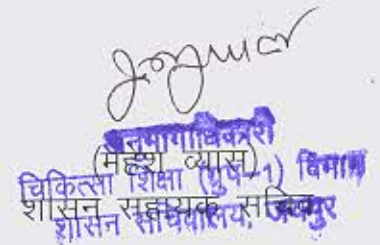 अनुभागाधिकारी
(महेश व्यास)
चिकित्सा शिक्षा (ग्रुप-1) विभाग
शासन सहायक सचिव
शासन सचिवालय, जयपुर